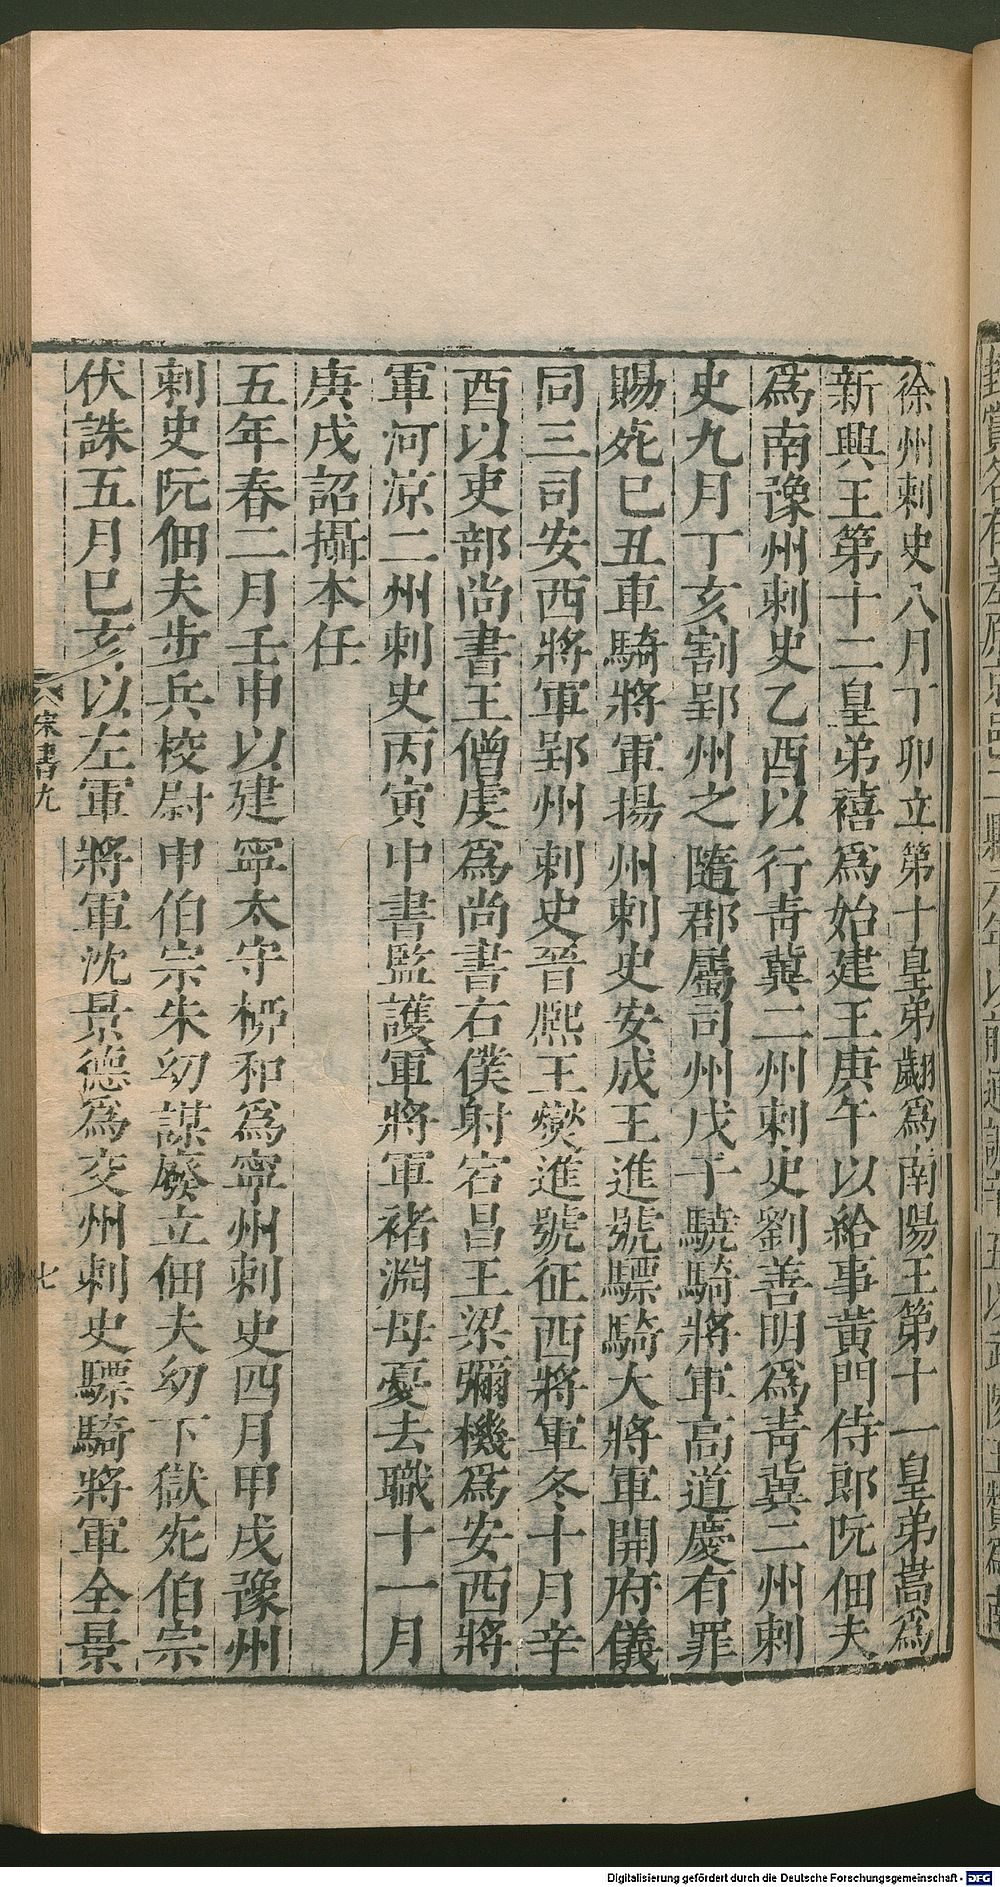 徐州刺史八月丁卯立第十皇弟翽爲南陽王第十一皇弟嵩爲
新興王第十二皇弟禧爲始建王庚午以給事黃門侍郎阮佃夫
爲南豫州刺史乙酉以行青冀二州刺史劉善明爲青冀二州刺
史九月丁亥割郢州之隨郡屬司州戊子驍騎將軍高道慶有罪
賜死巳丑車騎將軍揚州刺史安成王進號驃騎大將軍開府儀
同三司安西將軍郢州刺史晉熈王燮進號征西將軍冬十月辛
酉以吏部尚書王僧虔爲尚書右僕射宕昌王梁彌機爲安西將
軍河涼二州刺史丙寅中書監護軍將軍褚淵母憂去職十一月
庚戌詔攝本任
五年春二月壬申以建寧太守柳和爲寧州刺史四月甲戌豫州
刺史阮佃夫步兵校尉申伯宗朱幼謀廢立佃夫幼下獄死伯宗
伏誅五月巳亥以左軍將軍沈景德爲交州刺史驃騎將軍全景
宋書九
七
Digitalisierung gefördert durch die Deutsche Forschungsgemeinschaft - DFG